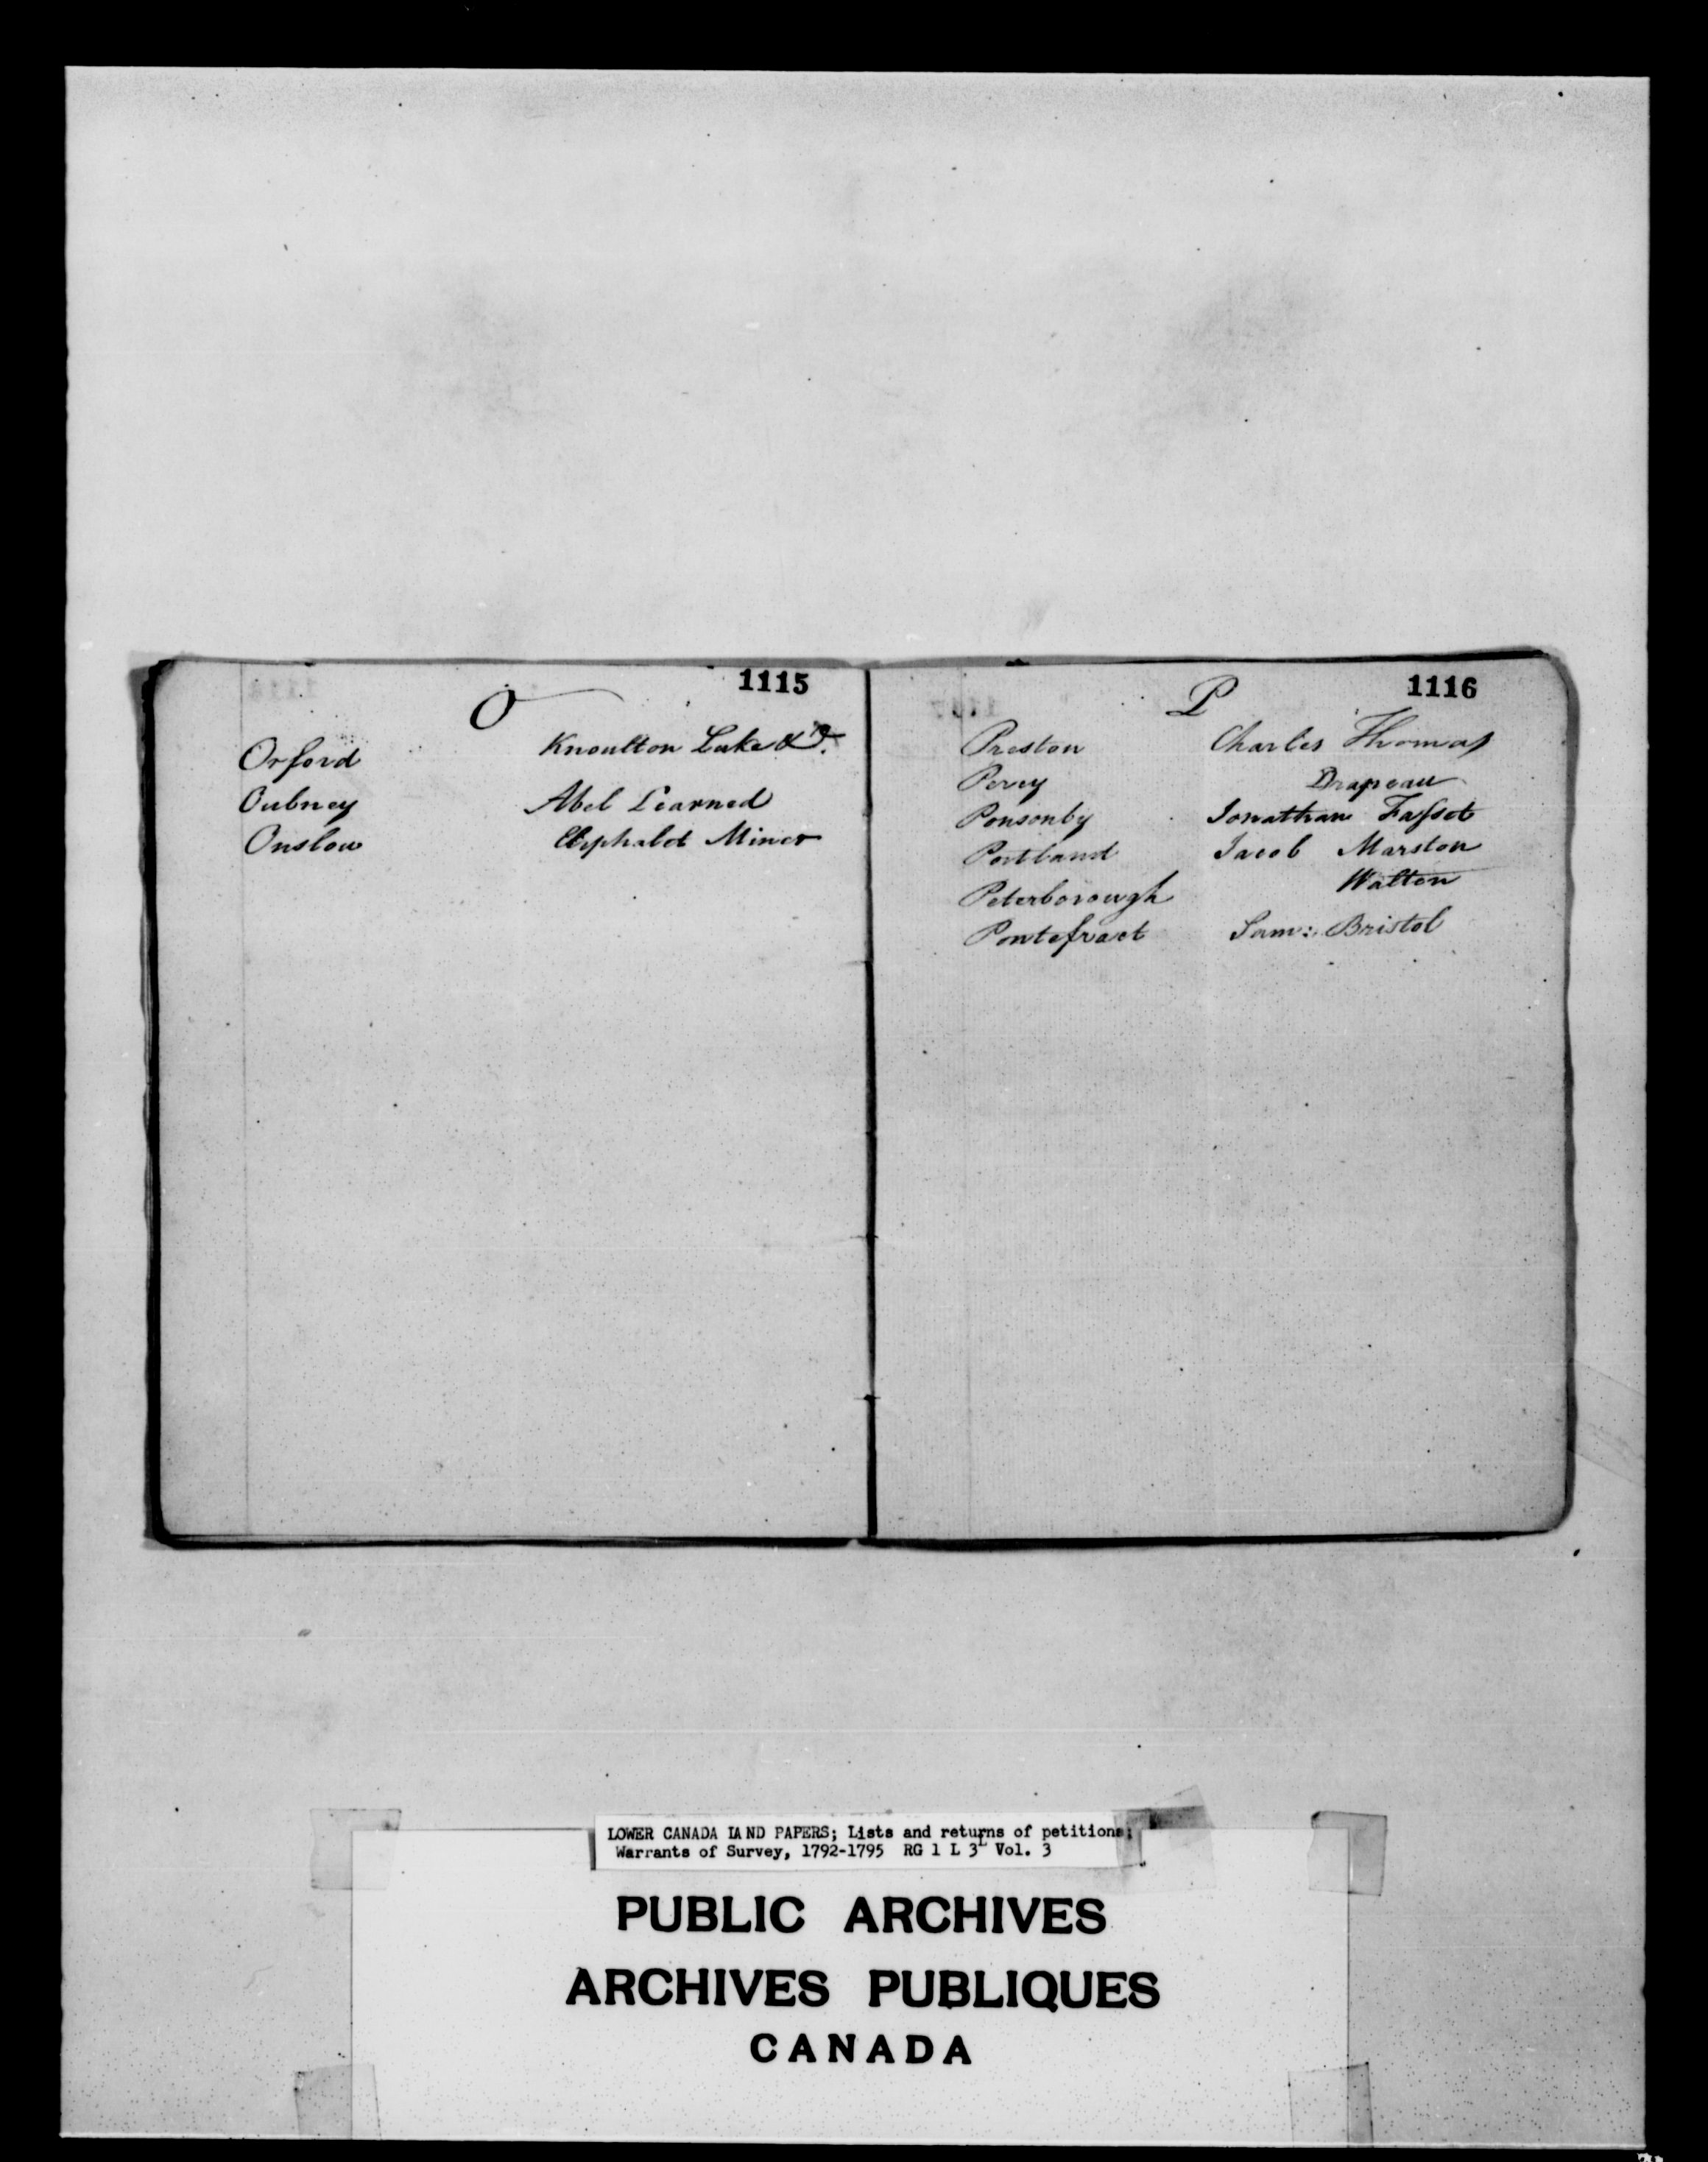 1115
O
Orford Knoulton Luke &
Oubney Abel Learned
Onslow Eliphalet Miner
1116
P
Preston Charles Thomas
Percy Drapeau
Ponsonby Jonathan Fasset
Portland Jacob Marston
Peterborough Walten
Pontefract Sam: Bristol
LOWER CANADA LAND PAPERS; Lists and returns of petitions;
Warrants of Survey, 1792-1795 RG 1 L 3L Vol. 3
PUBLIC ARCHIVES
ARCHIVES PUBLIQUES
CANADA